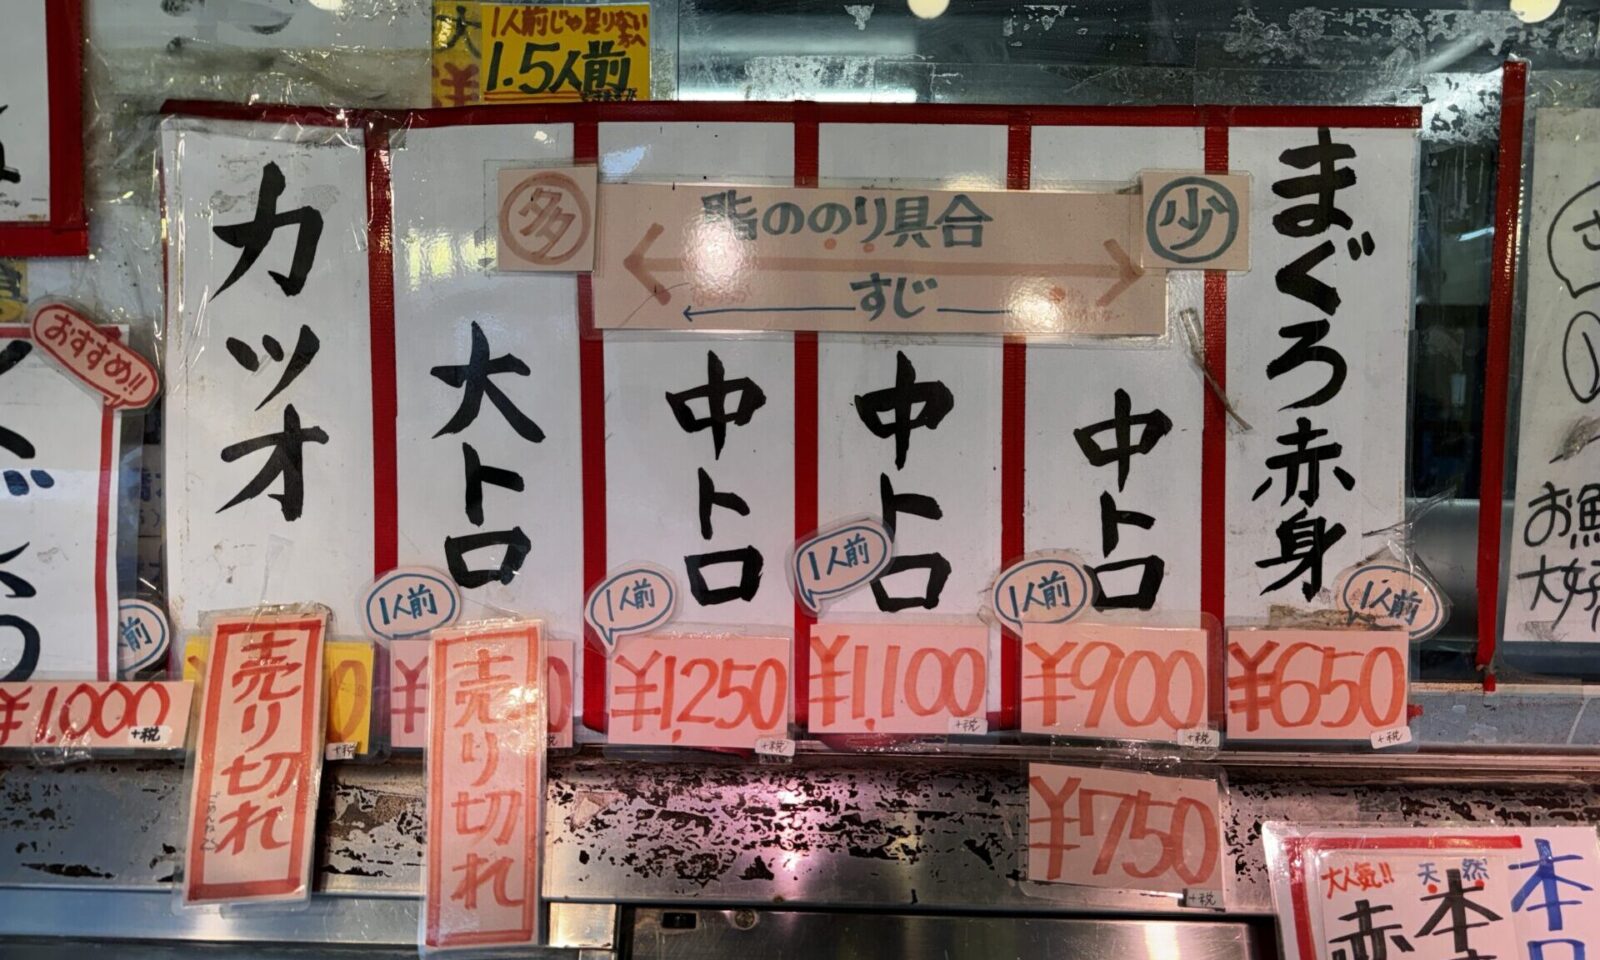 1人前じゃ足りない
1.5人前
大
多
脂ののり具合
少
すじ
カツオ
大トロ
中トロ
中トロ
中トロ
まぐろ赤身
おすすめ!!
前
1人前
1人前
1人前
1人前
1人前
¥1,000
+税
売り切れ
0
+税
¥
売り切れ
¥1,250
+税
¥1,100
+税
¥900
+税
¥650
+税
¥750
+税
お魚
大好
大人気!!
天然
赤
本
本